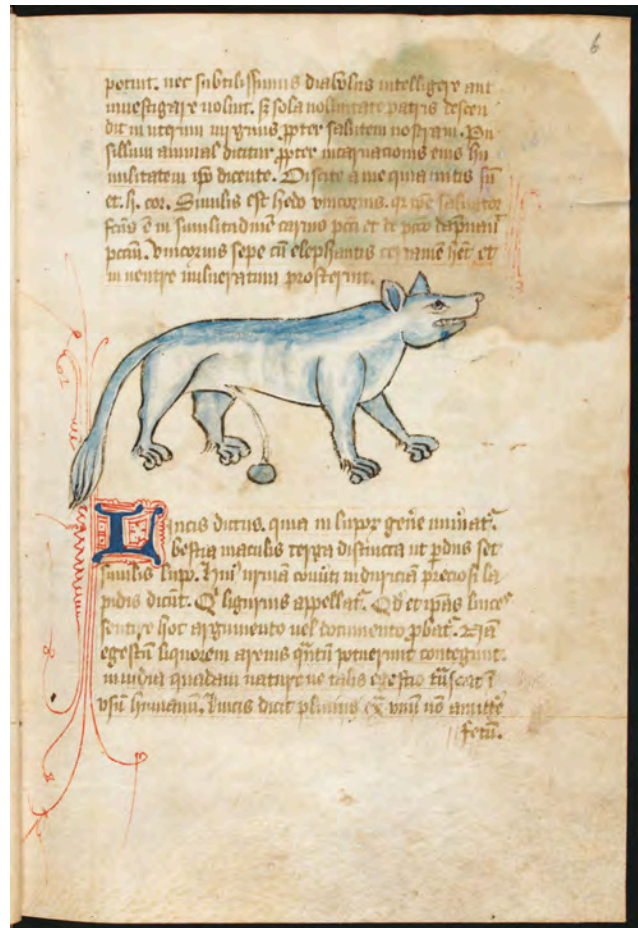 6
potuit. nec subtilissimus diabolus intelligere aut
inuestigare ualuit. sꝫ sola uoluntate patris descen
dit in uterum uirginis ꝓpter salutem nostram. Pu
sillum animal dicitur ꝓpter incarnacionis eius hu
militatem ip̄o dicente. Discite a me quia mitis sū
et. h. cor. Similis est hedo vnicornis. qꝛ ip̄e saluator
fcūs ē in similitudinē carnis pcc̄i et de pcc̄o dāpnauit
pcc̄m. Vnicornis sepe cū elephantis certamē hēt et
in uentre uulneratum prosternit.
Lincis dictus. quia in lupoꝝ genē numātᷣ.
bestia maculis terga distincta ut pdus set
similis lupo. huiꝰ urinā in duriciā preciosi la
pidis dicūt. Qͥ ligurius appellatᷣ. Qd et ip̄as lincēs
sentire hoc argumento uel documento ꝓbatᷣ. Nā
egestū liquorem arenis q̄ntū potuerint contegunt.
inuidia quadam nature ne talis egestio trāseat ī
vsū humanū. Lincis dicit plinius ex̄ vnū nō amitte
fetū.